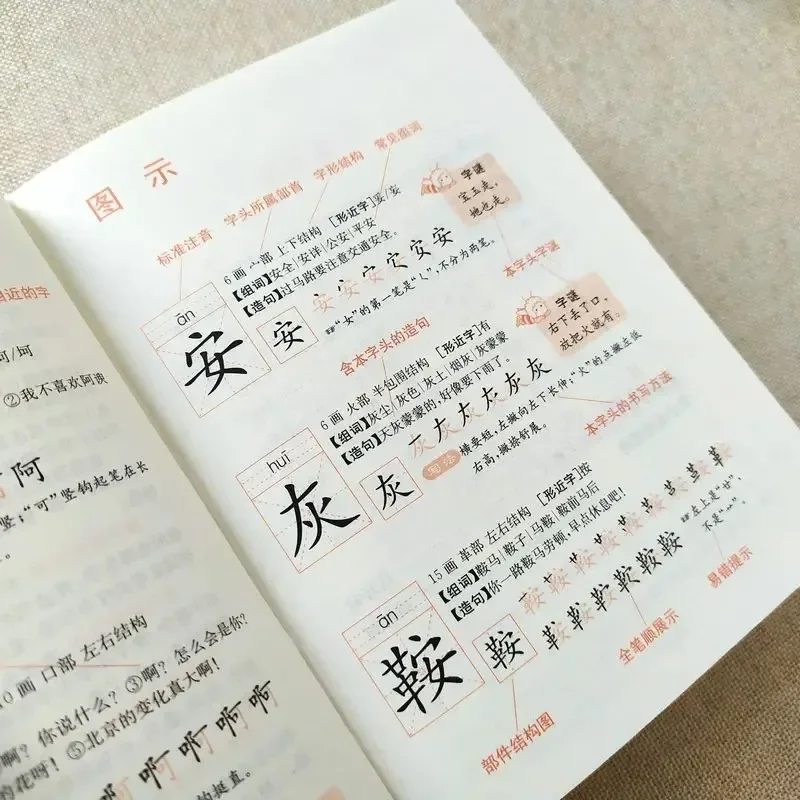 图 示
标准注音
字头所属部首
字形结构
常见组词
字谜
宝玉走，
她也走。
本字头字谜
ān
安
安
6画 宀部 上下结构 【形近字】妥/安
【组词】安全|安详|公安|平安
【造句】过马路要注意交通安全。
安安安安安安
“女”的第一笔是“㇛”，不分为两笔。
含本字头的造句
字谜
右下丢了口，
放把火就有。
huī
灰
灰
6画 火部 半包围结构 【形近字】有
【组词】灰尘|灰色|灰土|烟灰|灰蒙蒙
【造句】天灰蒙蒙的，好像要下雨了。
灰灰灰灰灰灰
写法 横要短，左撇向左下长伸；“火”的点撇左低
右高，撇捺舒展。
本字头的书写方法
ān
鞍
鞍
15画 革部 左右结构 【形近字】按
【组词】鞍马|鞍子|马鞍|鞍前马后
【造句】你一路鞍马劳顿，早点休息吧！
鞍鞍鞍鞍鞍鞍鞍鞍
鞍鞍鞍鞍鞍鞍鞍
左上是“廿”，
不是“艹”。
易错提示
全笔顺展示
部件结构图
相近的字
可/坷
②我不喜欢阿谀
阿
竖；“可”竖钩起笔在长
10画 口部 左右结构
啊？你说什么？③啊？怎么会是你？
啊！⑤北京的变化真大啊！
的花呀！
啊啊啊啊啊
的挺直。